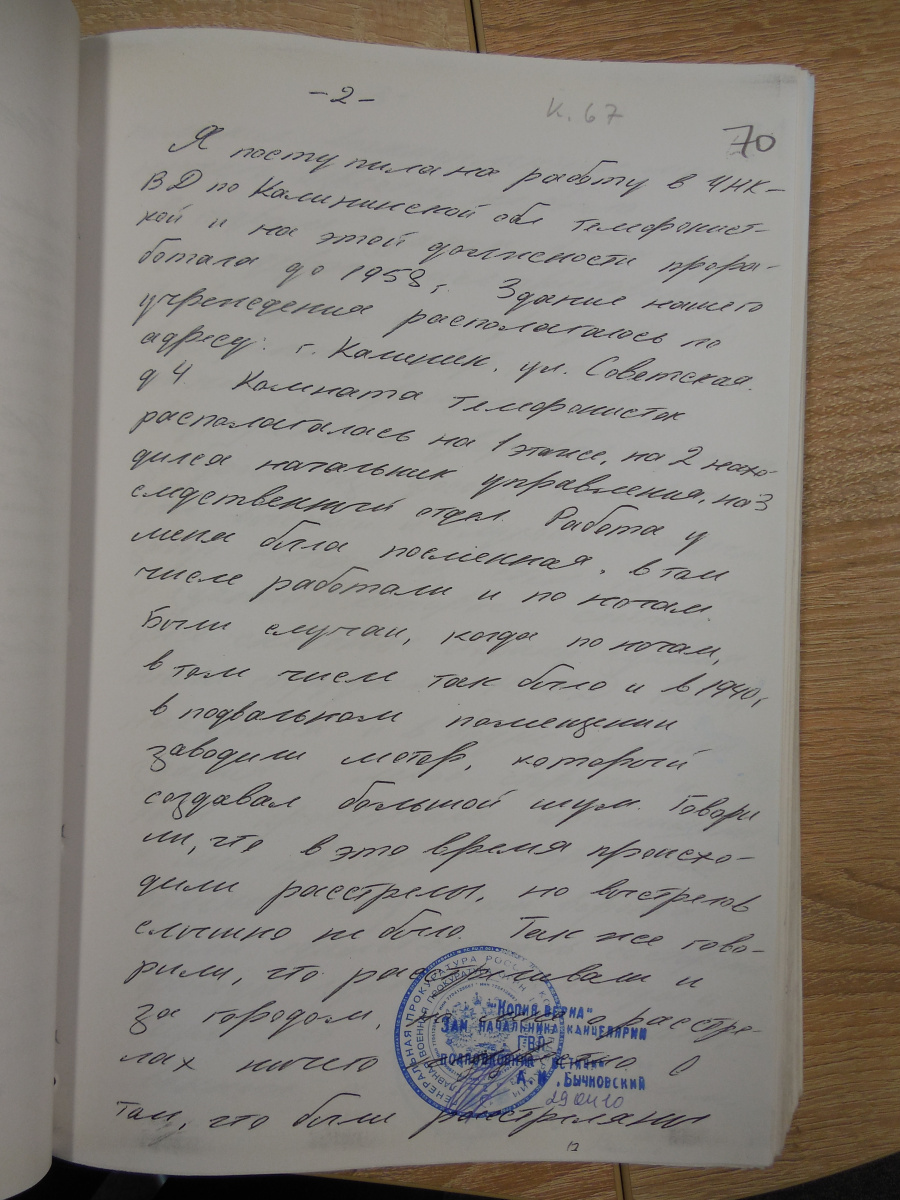 -2-
К. 67
70
Я поступила на работу в УНК-
ВД по Калининской обл телефонист-
кой и на этой должности прора-
ботала до 1953 г. Здание нашего
учреждения располагалось по
адресу: г. Калинин, ул. Советская.
д 4. Комната телефонисток
располагалась на 1 этаже, на 2 нахо-
дился начальник управления, на 3
следственный отдел. Работа у
меня была посменная, в том
числе работали и по ночам.
Были случаи, когда по ночам,
в том числе так было и в 1940 г,
в подвальном помещении
заводили мотор, который
создавал большой шум. Говори
ли, что в это время происхо-
дили расстрелы, но выстрелов
слышно не было. Так же гово-
рили, что расстреливали и
за городом, расстре-
лах ничего О
том, что были расстреляны
"КОПИЯ ВЕРНА"
ЗАМ. НАЧАЛЬНИКА КАНЦЕЛЯРИИ
ГВП
ПОДПОЛКОВНИК ЮСТИЦИИ
А. И. БЫЧКОВСКИЙ